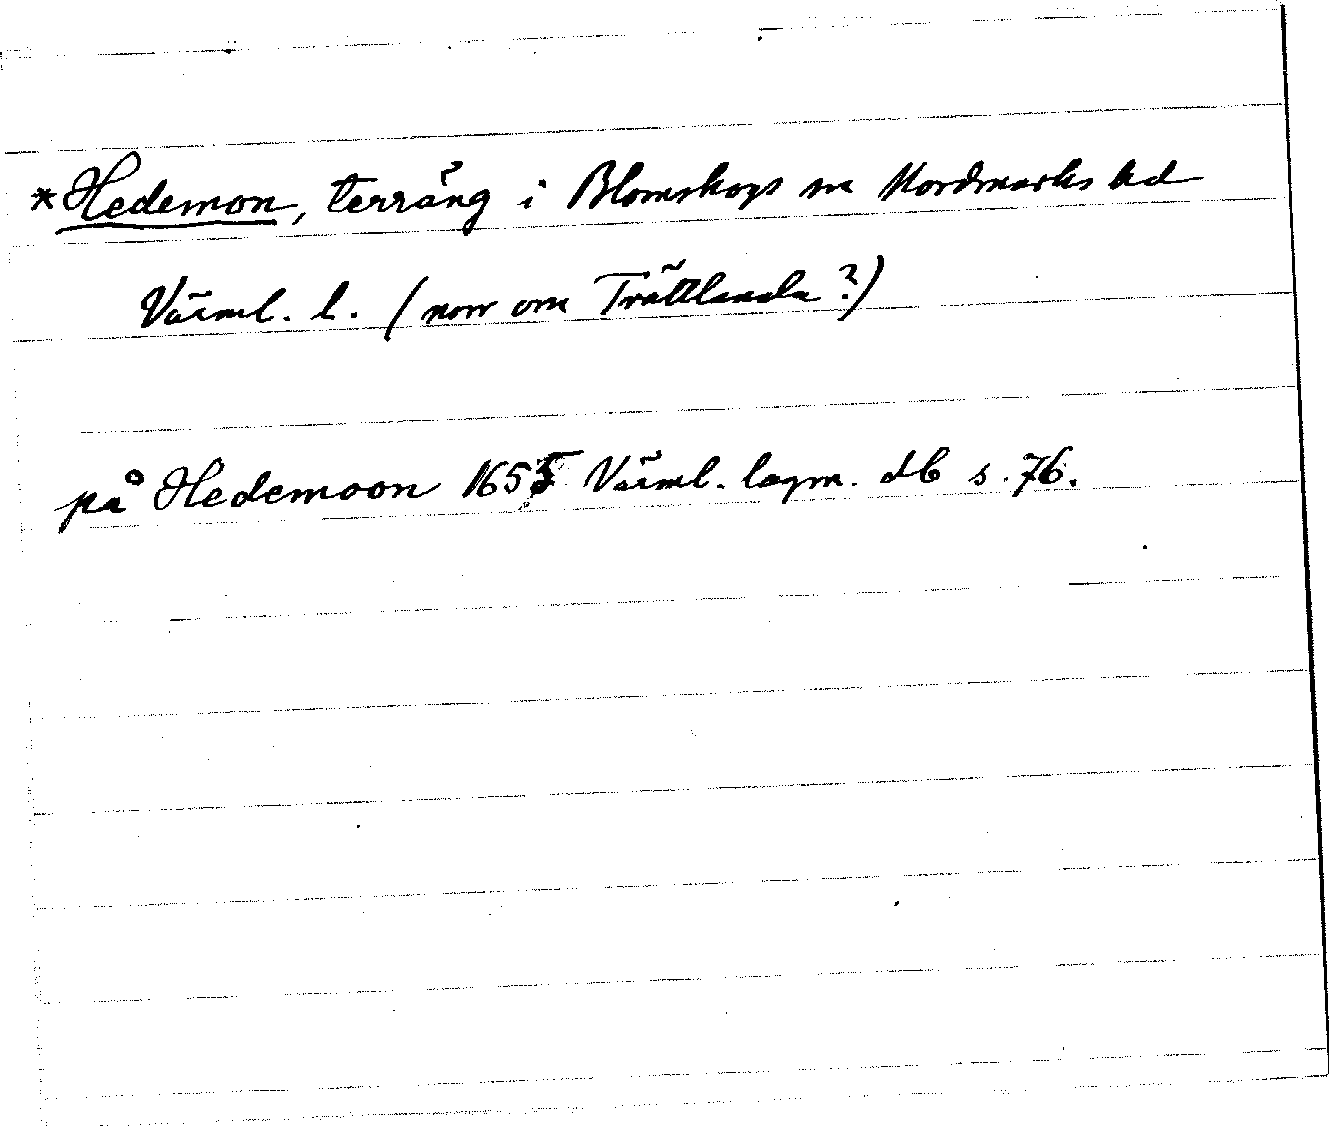 *Hedemon, terräng i Blomskogs sn Nordmarks hd
Värml. l. (norr om Trättlanda?)
på Hedemoon 1655 Värml. lagm. db s. 76.